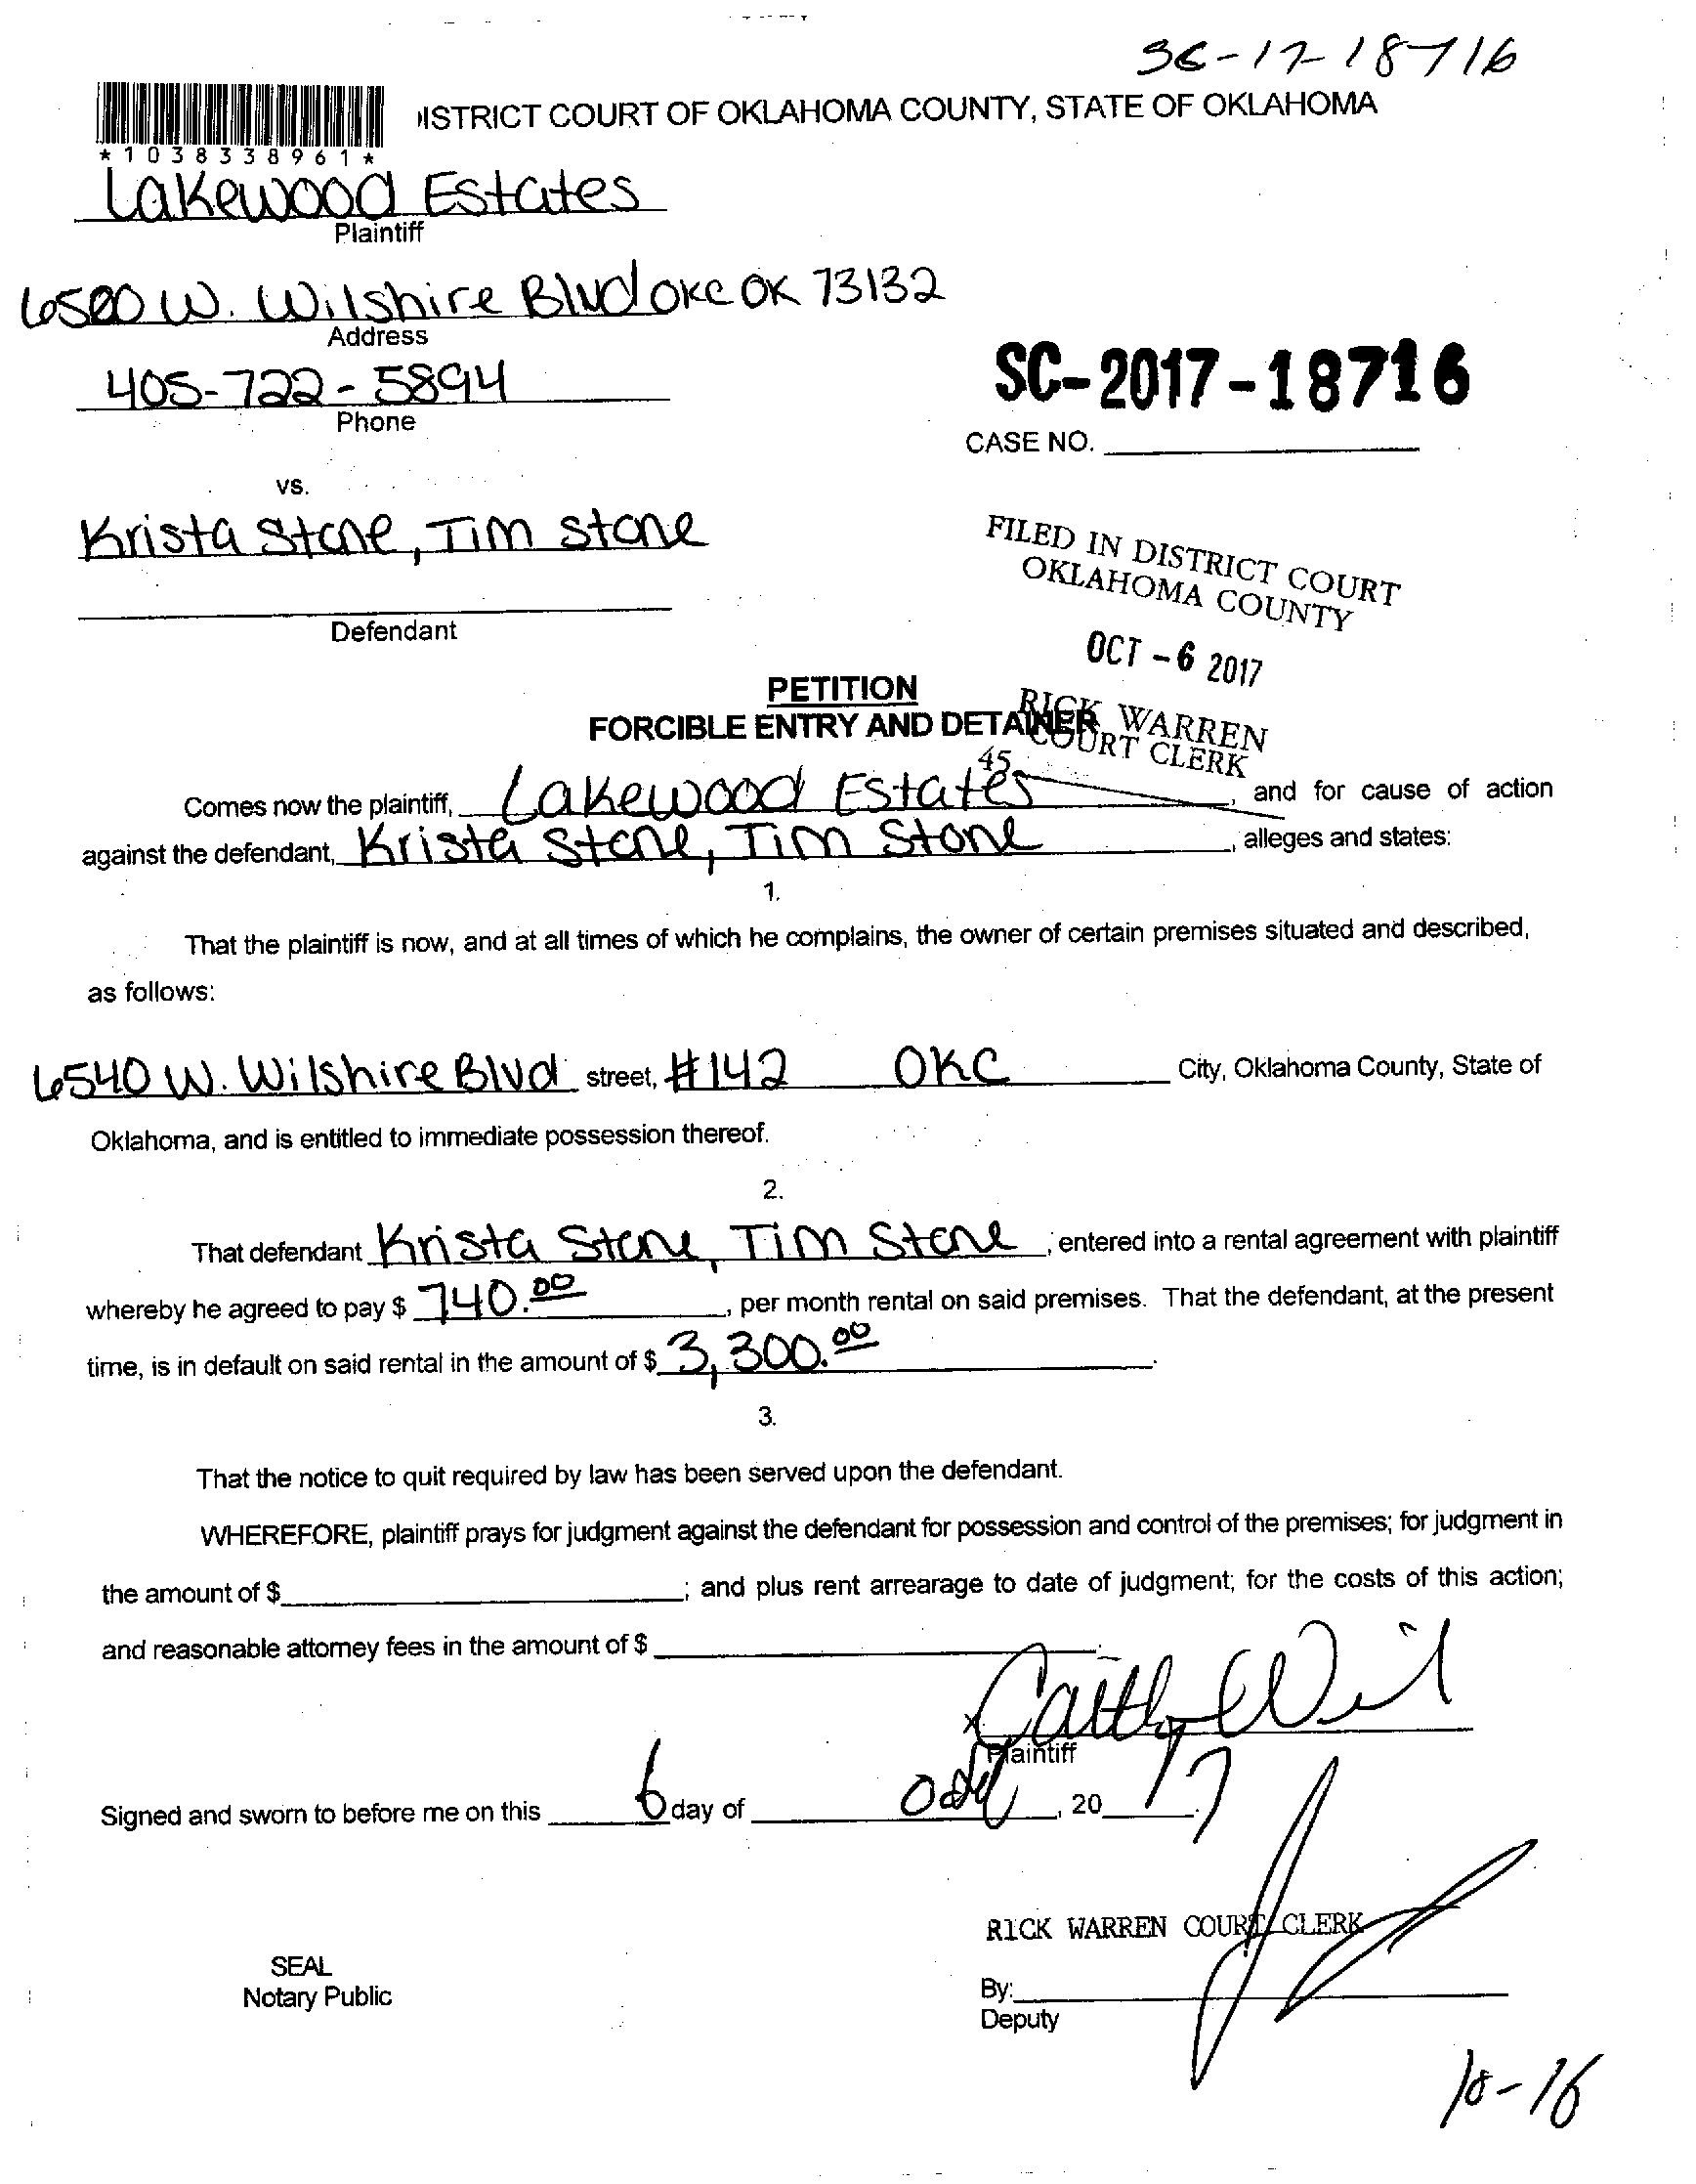 SC-17-18716
ISTRICT COURT OF OKLAHOMA COUNTY, STATE OF OKLAHOMA
*1038338961*
Lakewood Estates
Plaintiff
6500 W. Wilshire Blvd OKC OK 73132
Address
405-722-5894
Phone
SC-2017-18716
CASE NO.
vs.
Krista Stone, Tim Stone
Defendant
FILED IN DISTRICT COURT
OKLAHOMA COUNTY
OCT -6 2017
RICK WARREN
COURT CLERK
45
PETITION
FORCIBLE ENTRY AND DETAINER
Comes now the plaintiff, Lakewood Estates, and for cause of action
against the defendant, Krista Stone, Tim Stone, alleges and states:
1.
That the plaintiff is now, and at all times of which he complains, the owner of certain premises situated and described,
as follows:
6540 W. Wilshire Blvd street, #142 OKC City, Oklahoma County, State of
Oklahoma, and is entitled to immediate possession thereof.
2.
That defendant Krista Stone, Tim Stone, entered into a rental agreement with plaintiff
whereby he agreed to pay $ 740.00, per month rental on said premises. That the defendant, at the present
time, is in default on said rental in the amount of $ 3,300.00.
3.
That the notice to quit required by law has been served upon the defendant.
WHEREFORE, plaintiff prays for judgment against the defendant for possession and control of the premises; for judgment in
the amount of $ ; and plus rent arrearage to date of judgment; for the costs of this action;
and reasonable attorney fees in the amount of $ .
x
Plaintiff
Signed and sworn to before me on this 6 day of Oct, 20 17.
RICK WARREN COURT CLERK
SEAL
Notary Public
By:
Deputy
10-16